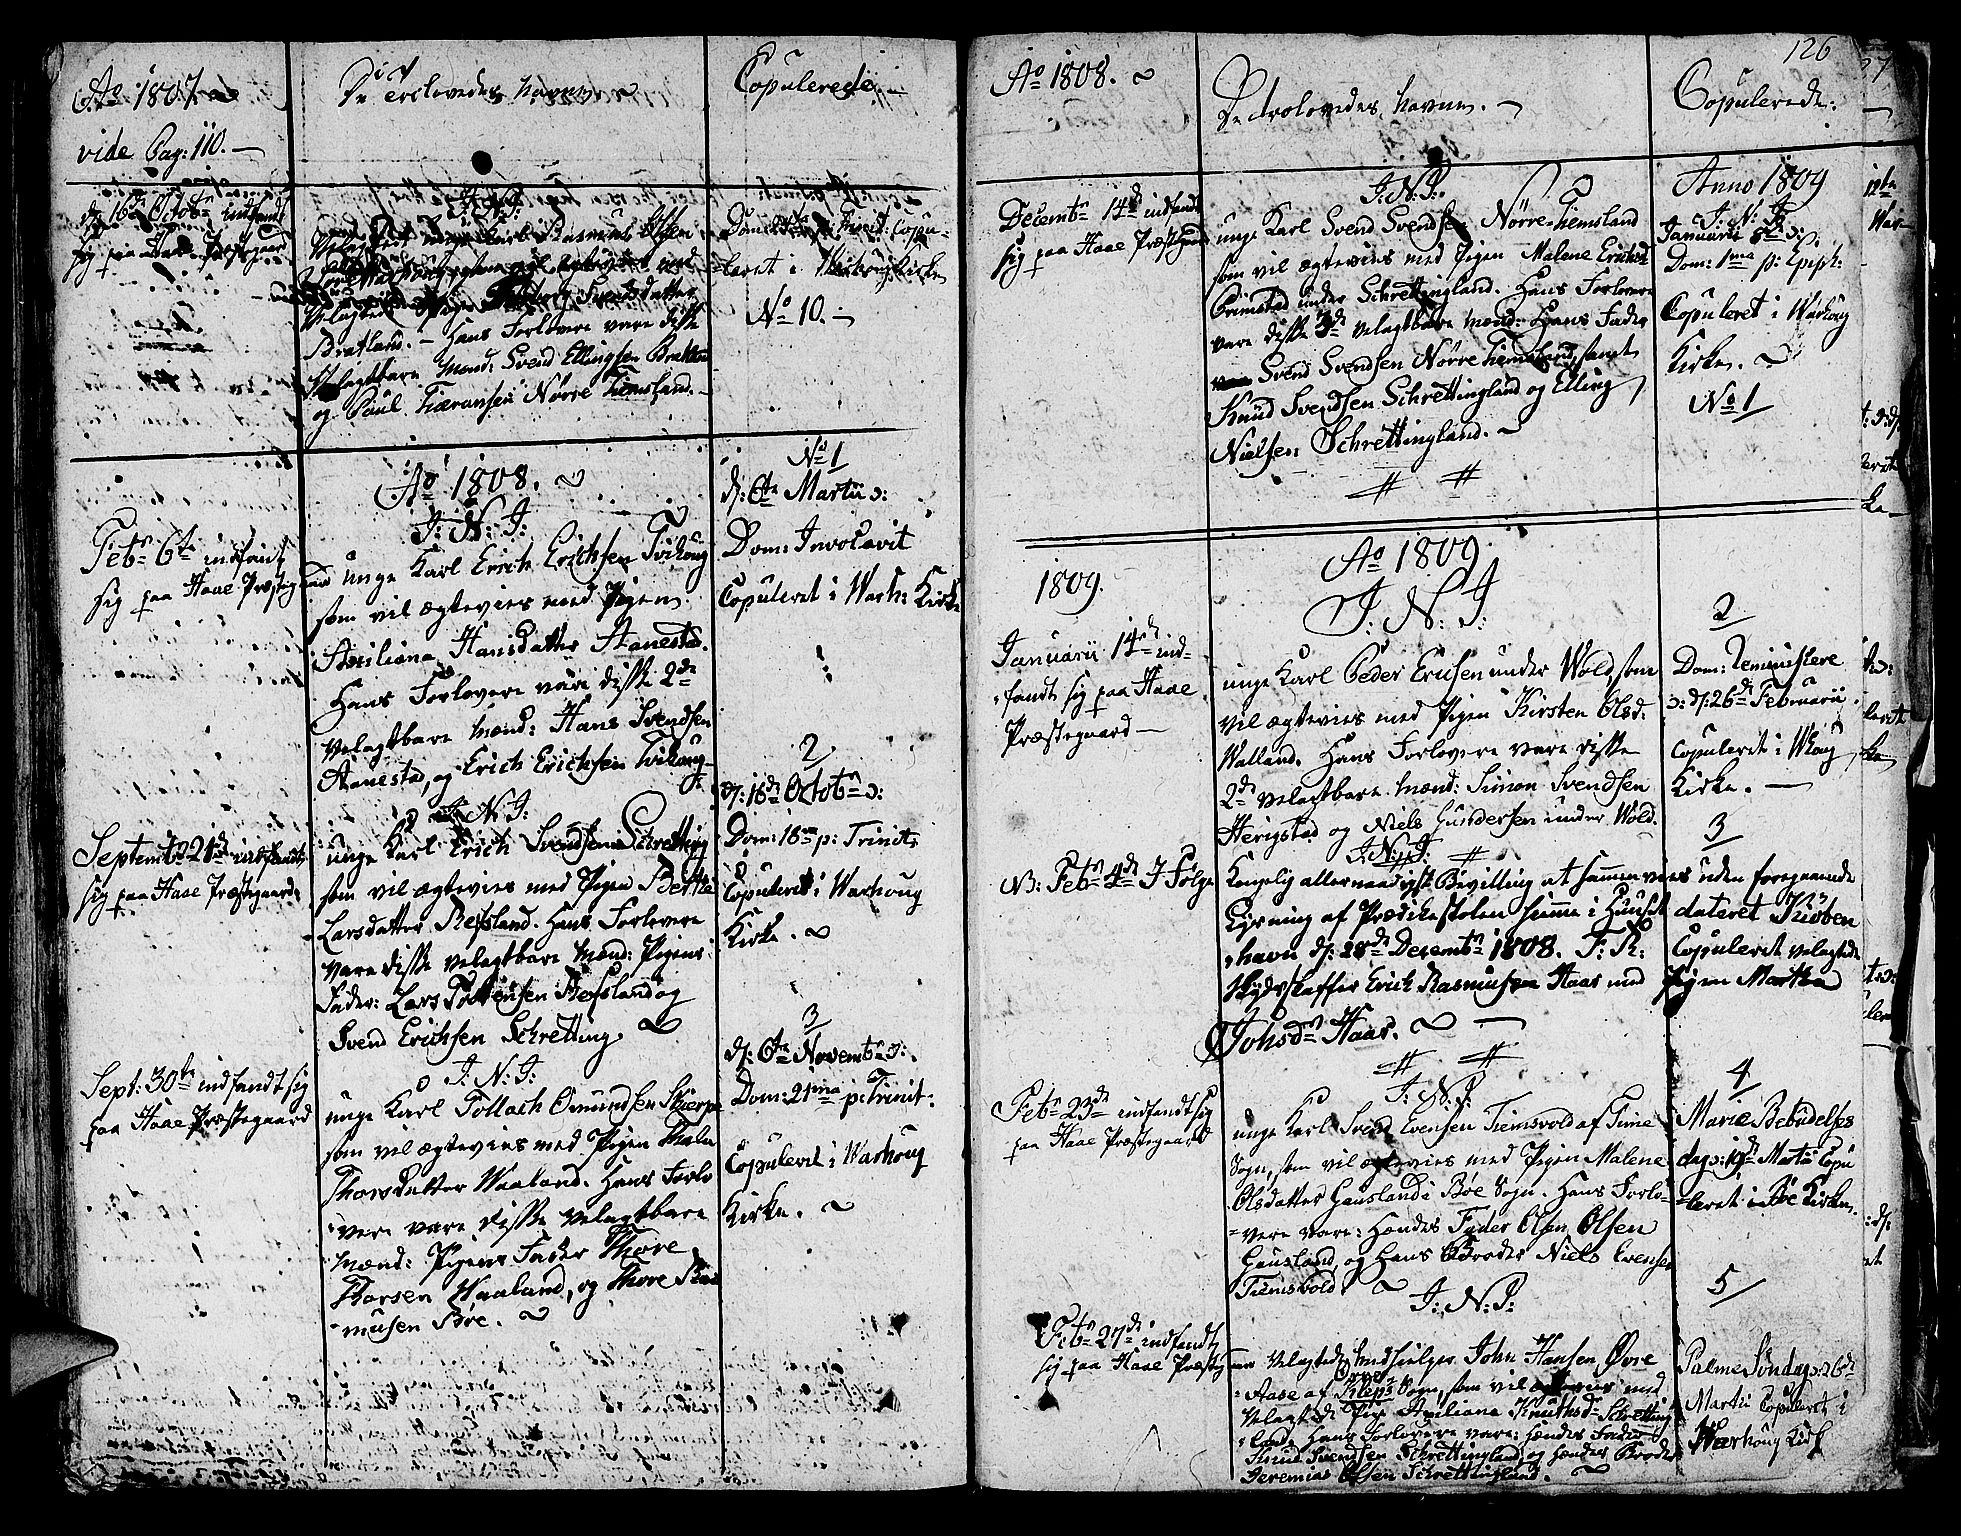 Ao 1807
vide Pag: 110.
De Trolovedes Navne
Copulerede
d: 16de Octobr indfandt
sig paa Haae Præstegaard
J: N: J:
Velagte unge Karl Rasmus Olsen
Svendsdatter
Bratland. Hans Forlovere vare diske
Velagtbare Mænd: Svend Ellingsen Bratland
og Paul Tiæransen Nørre Tiemsland.
Trinit: Copu-
-leret i Warhoug Kirke
No 10.
Ao 1808.
J: N: J:
Febr 6te indfant
sig paa Haae Præstegaard
unge Karl Erich Erichsen Tvihoug
som vil ægtevies med Pigen
Axiliana Hansdatter Aanestad.
Hans Forlovere vare diske 2de
Velagtbare Mænd: Hans Svendsen
Aanestad, og Erich Erichsen Tvihoug
No 1
d: 6te Martii ɔ:
Dom: Invocavit
Copuleret i Warh: Kirke
Septembr 21de indfandt
sig paa Haae Præstegaard
J: N: J:
unge Karl Erich Svendsen Schretting
som vil ægtevies med Pigen Berthe
Larsdatter Refsland. Hans Forlovere
vare diske velagtbare Mænd: Pigens
Fader: Lars Refsland og
Svend Erichsen Schretting
2
d: 16de Octobr ɔ:
Dom: 18 p: Trinit:
Copuleret i Warhoug
Kirke.
Sept: 30te indfandt sig
paa Haae Præstegaard
J: N: J:
unge Karl Tollach Omundsen Skierpe
som vil ægtevies med Pigen Thale
Thorsdatter Waaland. Hans Forlo-
-vere vare diske Velagtbare
Mænd: Pigens Fader Thore
Thorsen Waaland, og Thore Ras-
-musen Bøe.
3
d: 6te Novembr ɔ:
Dom: 21ma p: Trinit:
Copuleret i Warhoug
Kirke.
126
Ao 1808.
De trolovedes Navne.
Copulerede.
Decembr 14de indfandt
sig paa Haae Præstegaard
J: N: J:
unge Karl Svend Svendsen Nørre-Tiemsland
som vil ægtevies med Pigen Malene Erichsd
Grimstad under Schrettingland. Hans Forlovere
vare diske 3de velagtbare Mænd: Hans Fader
Svend Svendsen Nørre Tiemsland, samt
Knud Svendsen Schrettingland og Elling
Nielsen Schrettingland.
Anno 1809
J: N: J:
Januarii 8de ɔ:
Dom: 1ma p: Epiph:
Copuleret i Warhoug
Kirke.
No 1
1809.
Ao 1809
J: N: J:
Januarii 14de ind-
-fandt sig paa Haae
Præstegaard
unge Karl Peder Ericsen under Wold, som
vil ægtevies med Pigen Kirsten Olsd:
Walland. Hans Forlovere vare diske
2de velagtbare Mænd: Simon Svendsen
Herigstad og Niels Gundersen under Wold.
2
Dom: Reminiscere
ɔ: d: 26de Februarii
Copuleret i Whoug
Kirke.
3
J: N: J:
NB: Febr 4de I Følge Kongelig allernaadigst Bevilling at sammenvies uden foregaaende
Lysning af Prædikestolen hiemme i Huuset dateret Kiøben
-havn d: 28de Decembr 1808. F: R:
Copuleret velagtede
Skydsskaffer Erich Rasmusen Haar med Pigen Martha
Johsdr Haar.
Febr 23de indfandt sig
paa Haae Præstegaard
J: N: J:
unge Karl Svend Evensen Tiemsvold af Time
Sogn, som vil ægtevies med Pigen Malene
Olsdatter Gausland i Bøe Sogn. Hans Forlo-
-vere vare: Hændes Fader Olen Olsen
Gausland, og Hans Broder Niels Evensen
Tiemsvold
4
Mariæ Bebudelses
dag ɔ: 19de Martii Copu
-leret i Bøe Kirke.
J: N: J:
Febr 27de indfandt
sig paa Haae Præstegaard
Velagtede John Hansen Øvre
Aase af Kleps Sogn, som vil ægtevies med
Velagtede Pige Axiliana Knuthsd: Schretting
-land. Hans Forlovere vare: Hændes Fader
Knud Svendsen Schrettingland, og hændes Broder
Jeremias Olsen Schrettingland.
5
Palme Søndag ɔ: 26de
Martii Copuleret i
Warhoug Kirke